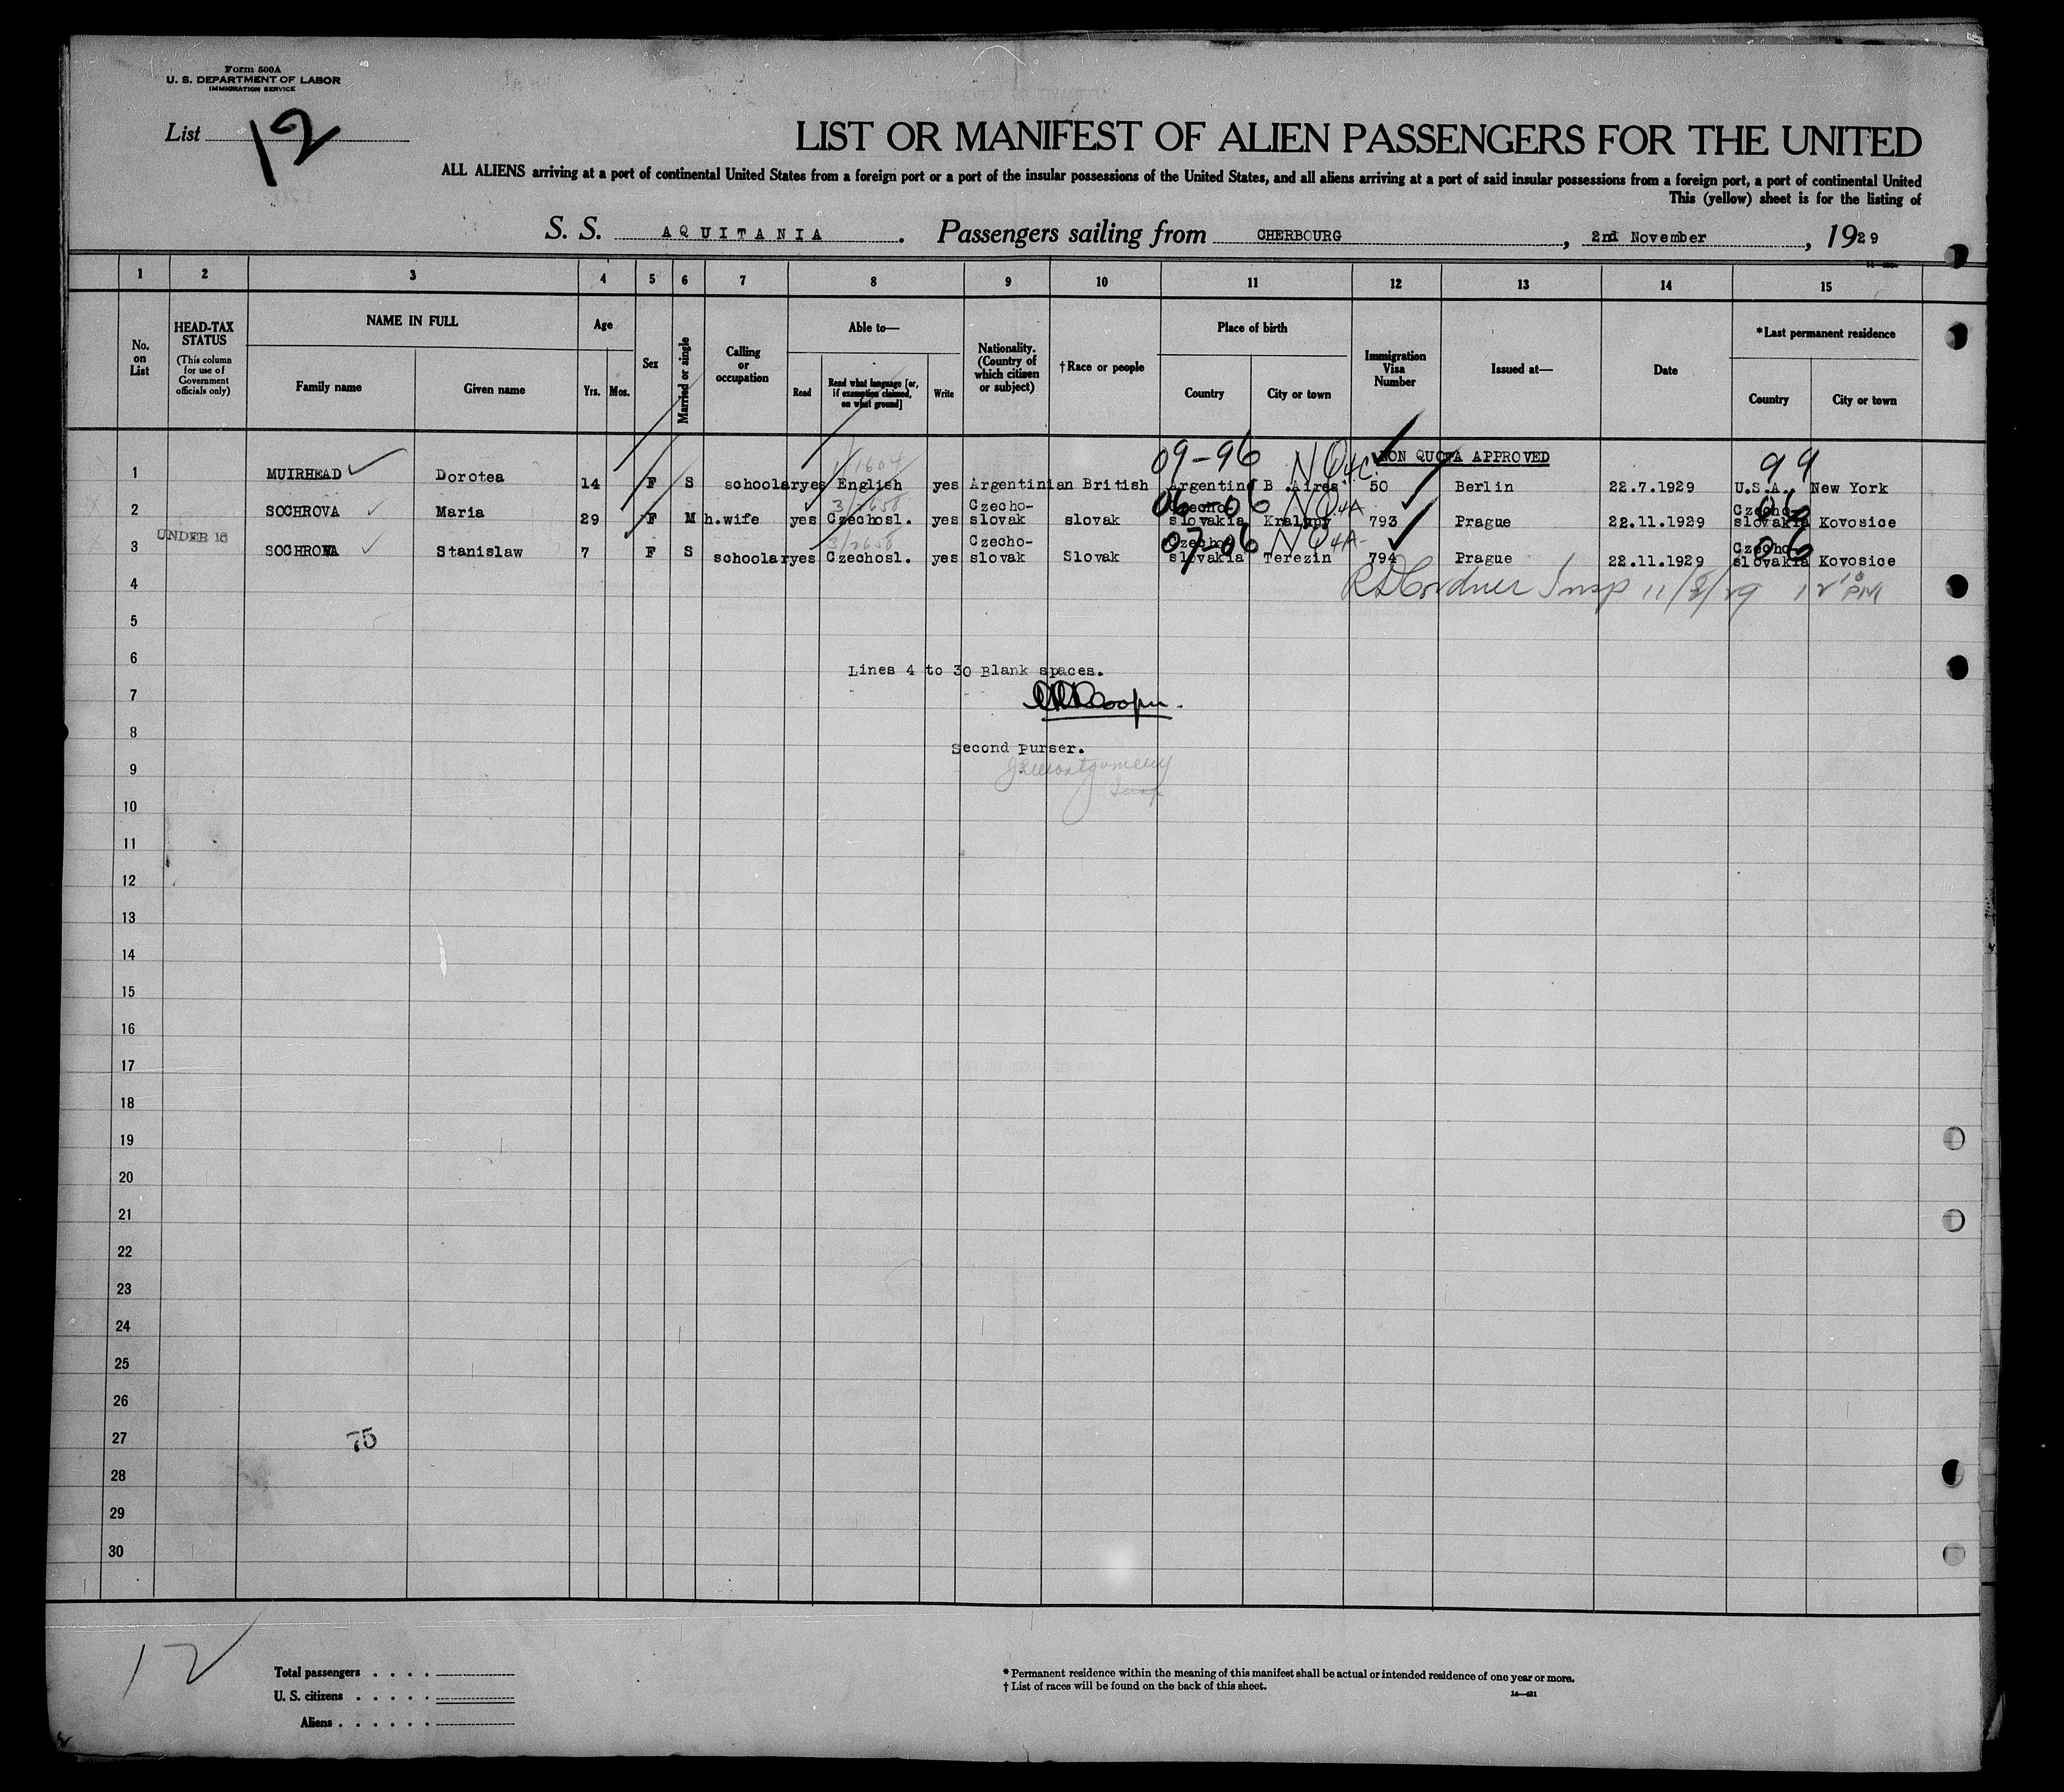 Form 500A
U. S. DEPARTMENT OF LABOR
IMMIGRATION SERVICE
List 12
LIST OR MANIFEST OF ALIEN PASSENGERS FOR THE UNITED
ALL ALIENS arriving at a port of continental United States from a foreign port or a port of the insular possessions of the United States, and all aliens arriving at a port of said insular possessions from a foreign port, a port of continental United
This (yellow) sheet is for the listing of
S. S. AQUITANIA . Passengers sailing from CHERBOURG , 2nd November , 1929
1 2 3 4 5 6 7 8 9 10 11 12 13 14 15
No. on List
HEAD-TAX STATUS
(This column for use of Government officials only)
NAME IN FULL
Family name Given name
Age
Yrs. Mos.
Sex
Married or single
Calling or occupation
Able to—
Read Read what language [or, if exemption claimed, on what ground] Write
Nationality. (Country of which citizen or subject)
†Race or people
Place of birth
Country City or town
Immigration Visa Number
Issued at—
Date
*Last permanent residence
Country City or town
09-96 NQ4C NON QUOTA APPROVED 99
1/1604
1 MUIRHEAD Dorotea 14 F S scholar yes English yes Argentinian British Argentine B.Aires 50 Berlin 22.7.1929 U.S.A. New York
3/2658 06-06 NQ4A 06
2 SOCHROVA Maria 29 F M h.wife yes Czechosl. yes Czecho-slovak slovak Czecho-slovakia Kralupy 793 Prague 22.11.1929 Czecho-slovakia Kovosice
UNDER 16
3/2658 07-06 NQ4A 06
3 SOCHROVA Stanislaw 7 F S schoolar yes Czechosl. yes Czecho-slovak Slovak Czecho-slovakia Terezin 794 Prague 22.11.1929 Czecho-slovakia Kovosice
4
Insp 11/8/29 12 10 PM
5
6
Lines 4 to 30 Blank spaces.
7
Cooper.
8
Second Purser.
9
Montgomery
Insp
10
11
12
13
14
15
16
17
18
19
20
21
22
23
24
25
26
27
75
28
29
30
12
Total passengers . . . .
U. S. citizens . . . . .
Aliens . . . . . .
* Permanent residence within the meaning of this manifest shall be actual or intended residence of one year or more.
† List of races will be found on the back of this sheet.
14—431